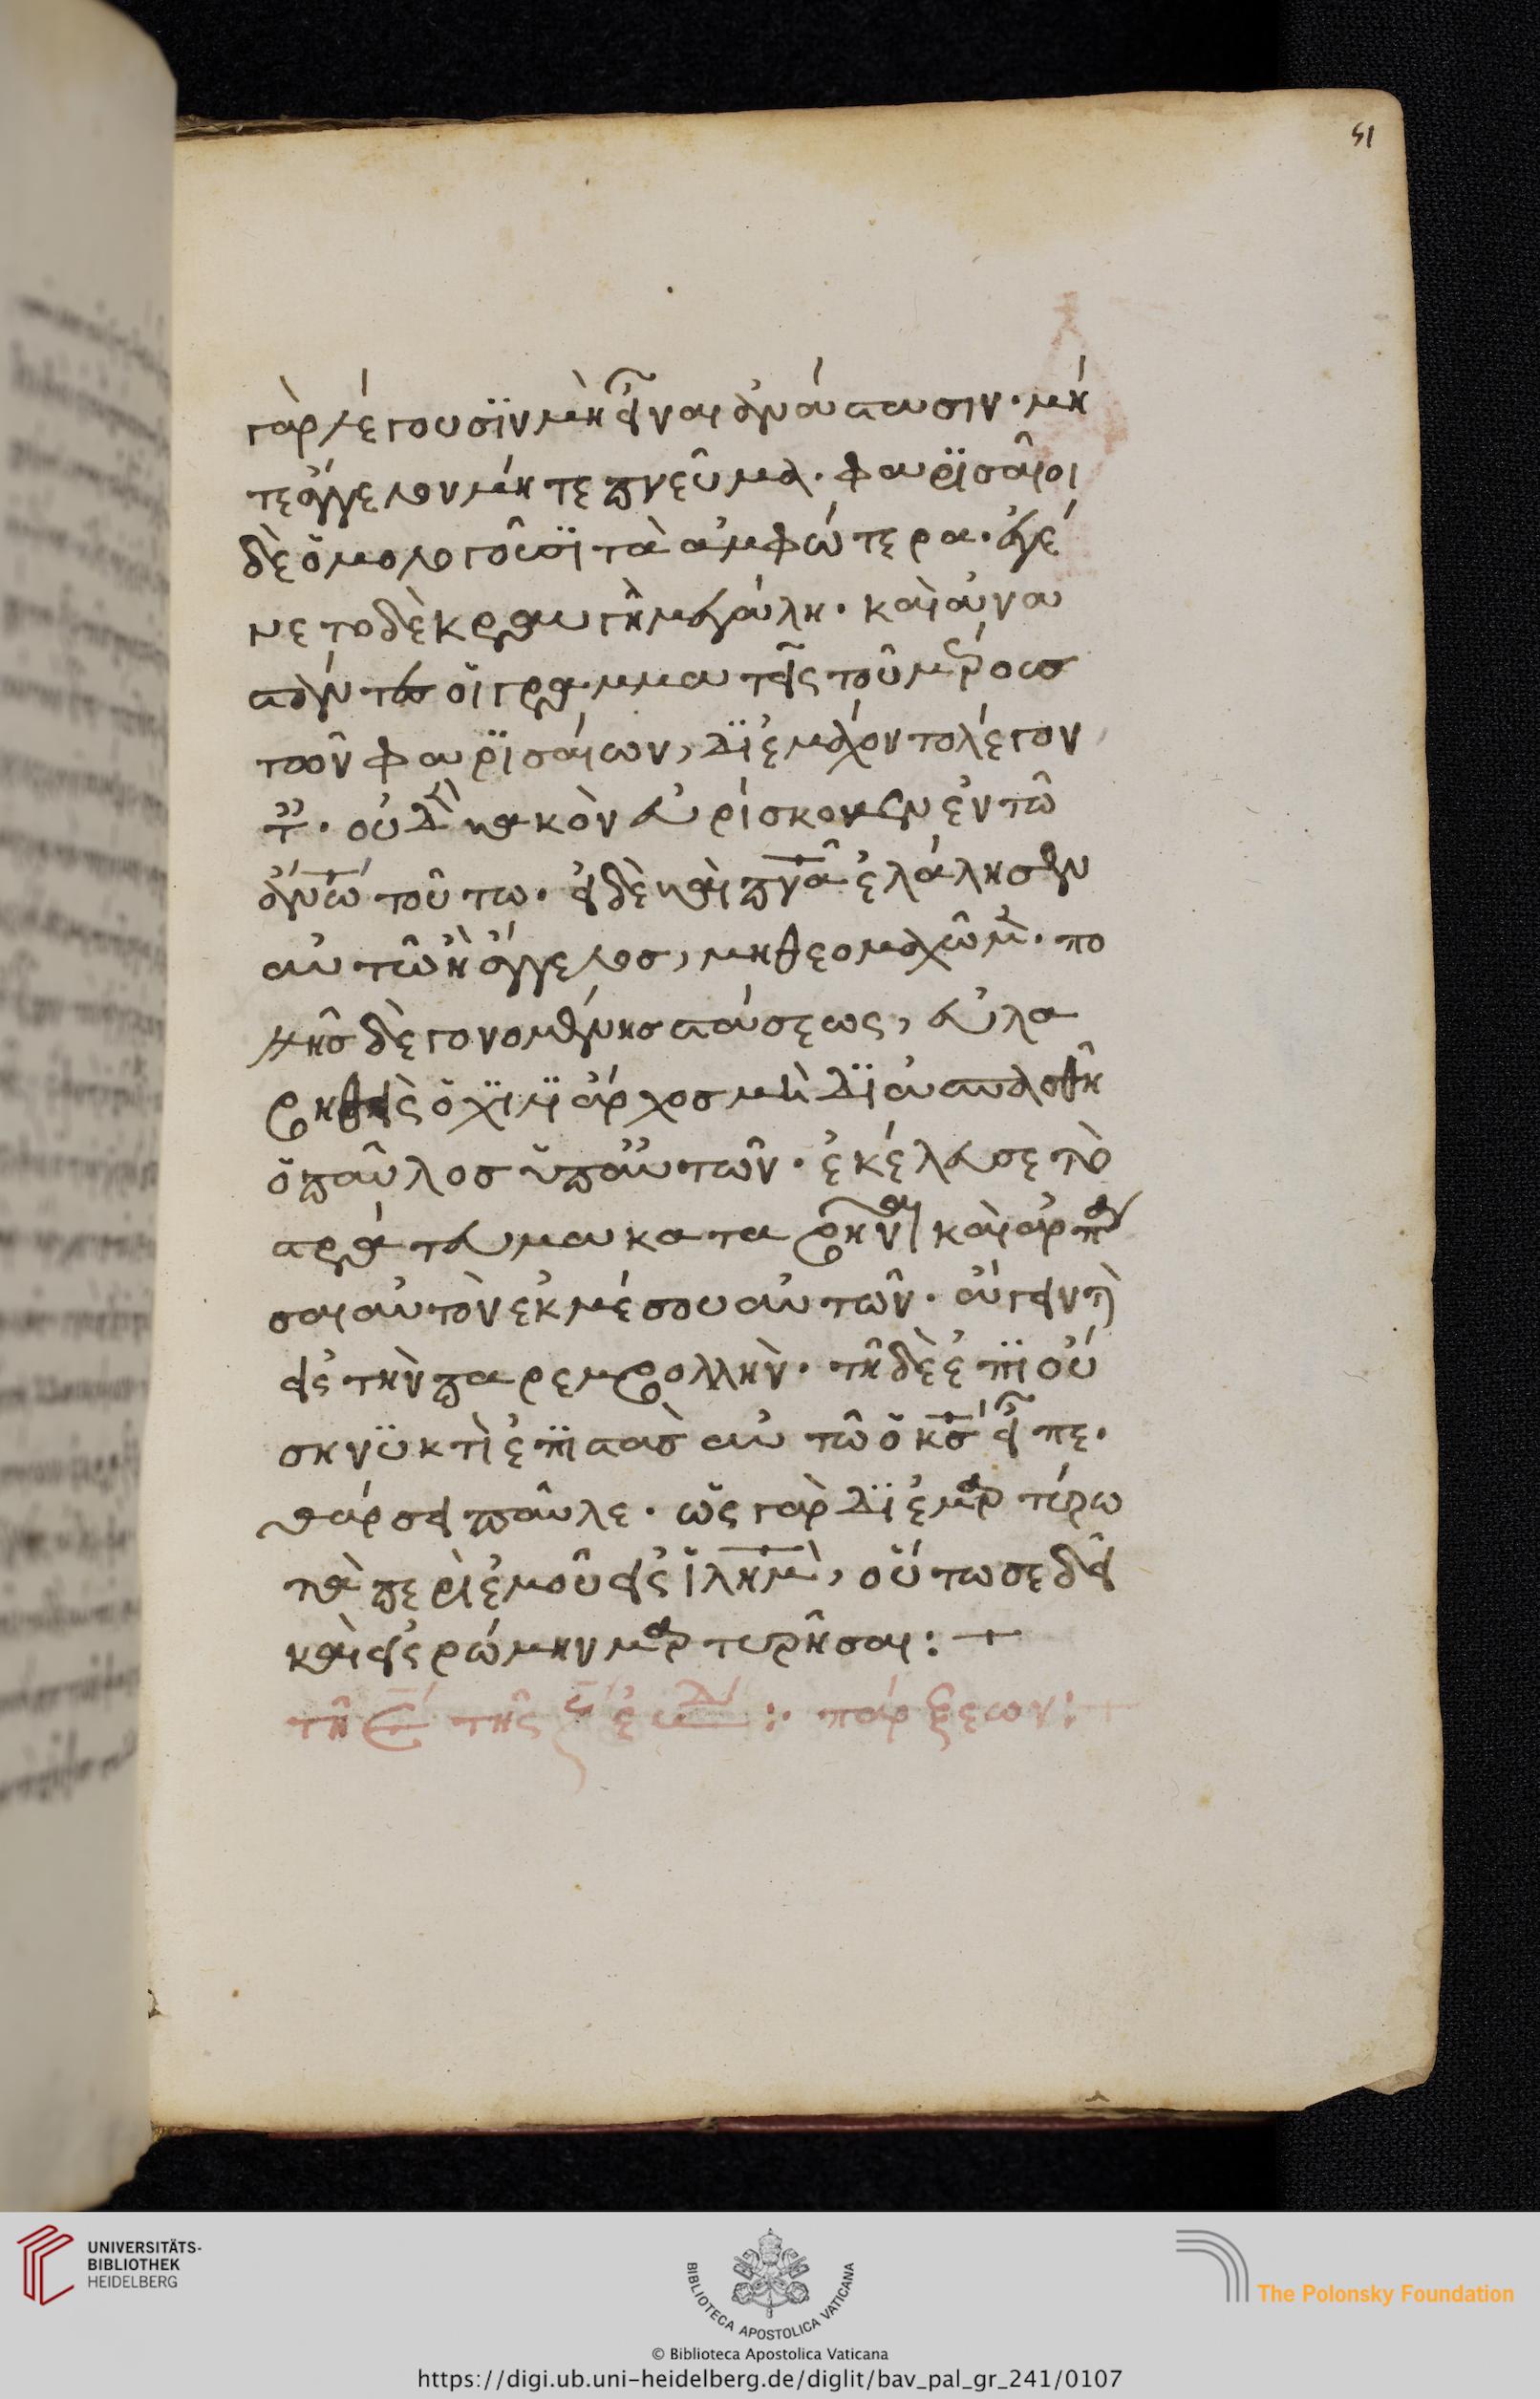 γὰρ λέγουσϊν μὴ εἶναι ἀνάστασιν· μή
τε ἄγγελον μήτε πνεῦμα· φαρϊσαῖοι
δὲ ὁμολογοῦσϊ τὰ ἀμφώτερα· ἐγέ
νετο δὲ κραυγῆ μεγάλη· καὶ ἀνα
στάντες οἱ γραμματεῖς τοῦ μέρους
τῶν φαρϊσαίων, δϊεμάχοντο λέγον
τες· οὐδὲν κακὸν εὑρίσκομεν ἐν τῶ
ἀν̅ω̅ τούτω· εἰ δὲ καὶ πν̅α̅ ἐλάλησεν
αὐτῶ ἢ ἄγγελος, μὴ θεομαχῶμεν· πο
λλῆς δὲ γενομένης στάσεως, εὐλα
βηθεὶς ὁ χϊλϊάρχος μὴ δϊασπασθῆ
ὁ παῦλος ὑπ' αὐτῶν· ἐκέλευσε τὸ
στράτευμα καταβῆναι καὶ ἁρπά
σαι αὐτὸν ἐκ μέσου αὐτῶν· ἄγειν τὲ
εἰς τὴν παρεμβολλὴν· τῆ δὲ ἐπϊού
ση νϋκτὶ ἐπϊστὰς αὐτῶ ὁ κ̅ς̅ εἶπε·
θάρσει παῦλε· ὡς γὰρ δϊεμαρτύρω
τὰ περὶ ἐμοῦ εἰς ἱλ̅η̅μ̅, οὕτω σε δεῖ
καὶ εἰς ρώμην μαρτυρῆσαι: +
τῆ ε̅ τῆς ϛ̅ ἑβδ: πράξεων:+
51
UNIVERSITÄTS-
BIBLIOTHEK
HEIDELBERG
BIBLIOTECA APOSTOLICA VATICANA
The Polonsky Foundation
© Biblioteca Apostolica Vaticana
https://digi.ub.uni-heidelberg.de/diglit/bav_pal_gr_241/0107